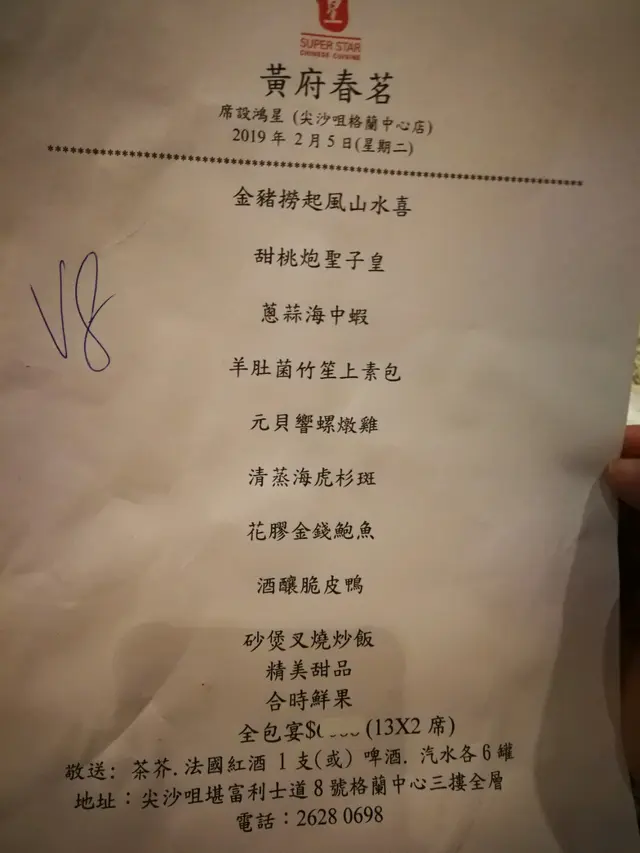 星
SUPER STAR
CHINESE CUISINE
黃府春茗
席設鴻星 (尖沙咀格蘭中心店)
2019 年 2 月 5 日(星期二)
******************************************************************************
金豬撈起風山水喜
甜桃炮聖子皇
蔥蒜海中蝦
羊肚菌竹笙上素包
元貝響螺燉雞
清蒸海虎杉斑
花膠金錢鮑魚
酒釀脆皮鴨
砂煲叉燒炒飯
精美甜品
合時鮮果
全包宴$ (13X2 席)
敬送: 茶芥.法國紅酒 1 支(或) 啤酒. 汽水各 6 罐
地址：尖沙咀堪富利士道 8 號格蘭中心三摟全層
電話：2628 0698
V8